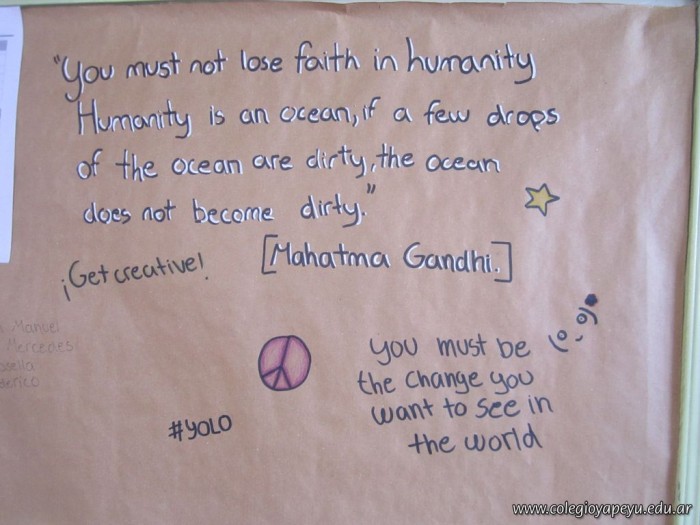 "You must not lose faith in humanity
Humanity is an ocean, if a few drops
of the ocean are dirty, the ocean
does not become dirty."
[Mahatma Gandhi.]
¡Get creative!
Manuel
Mercedes
#YOLO
you must be
the change you
want to see in
the world
www.colegioyapeyu.edu.ar